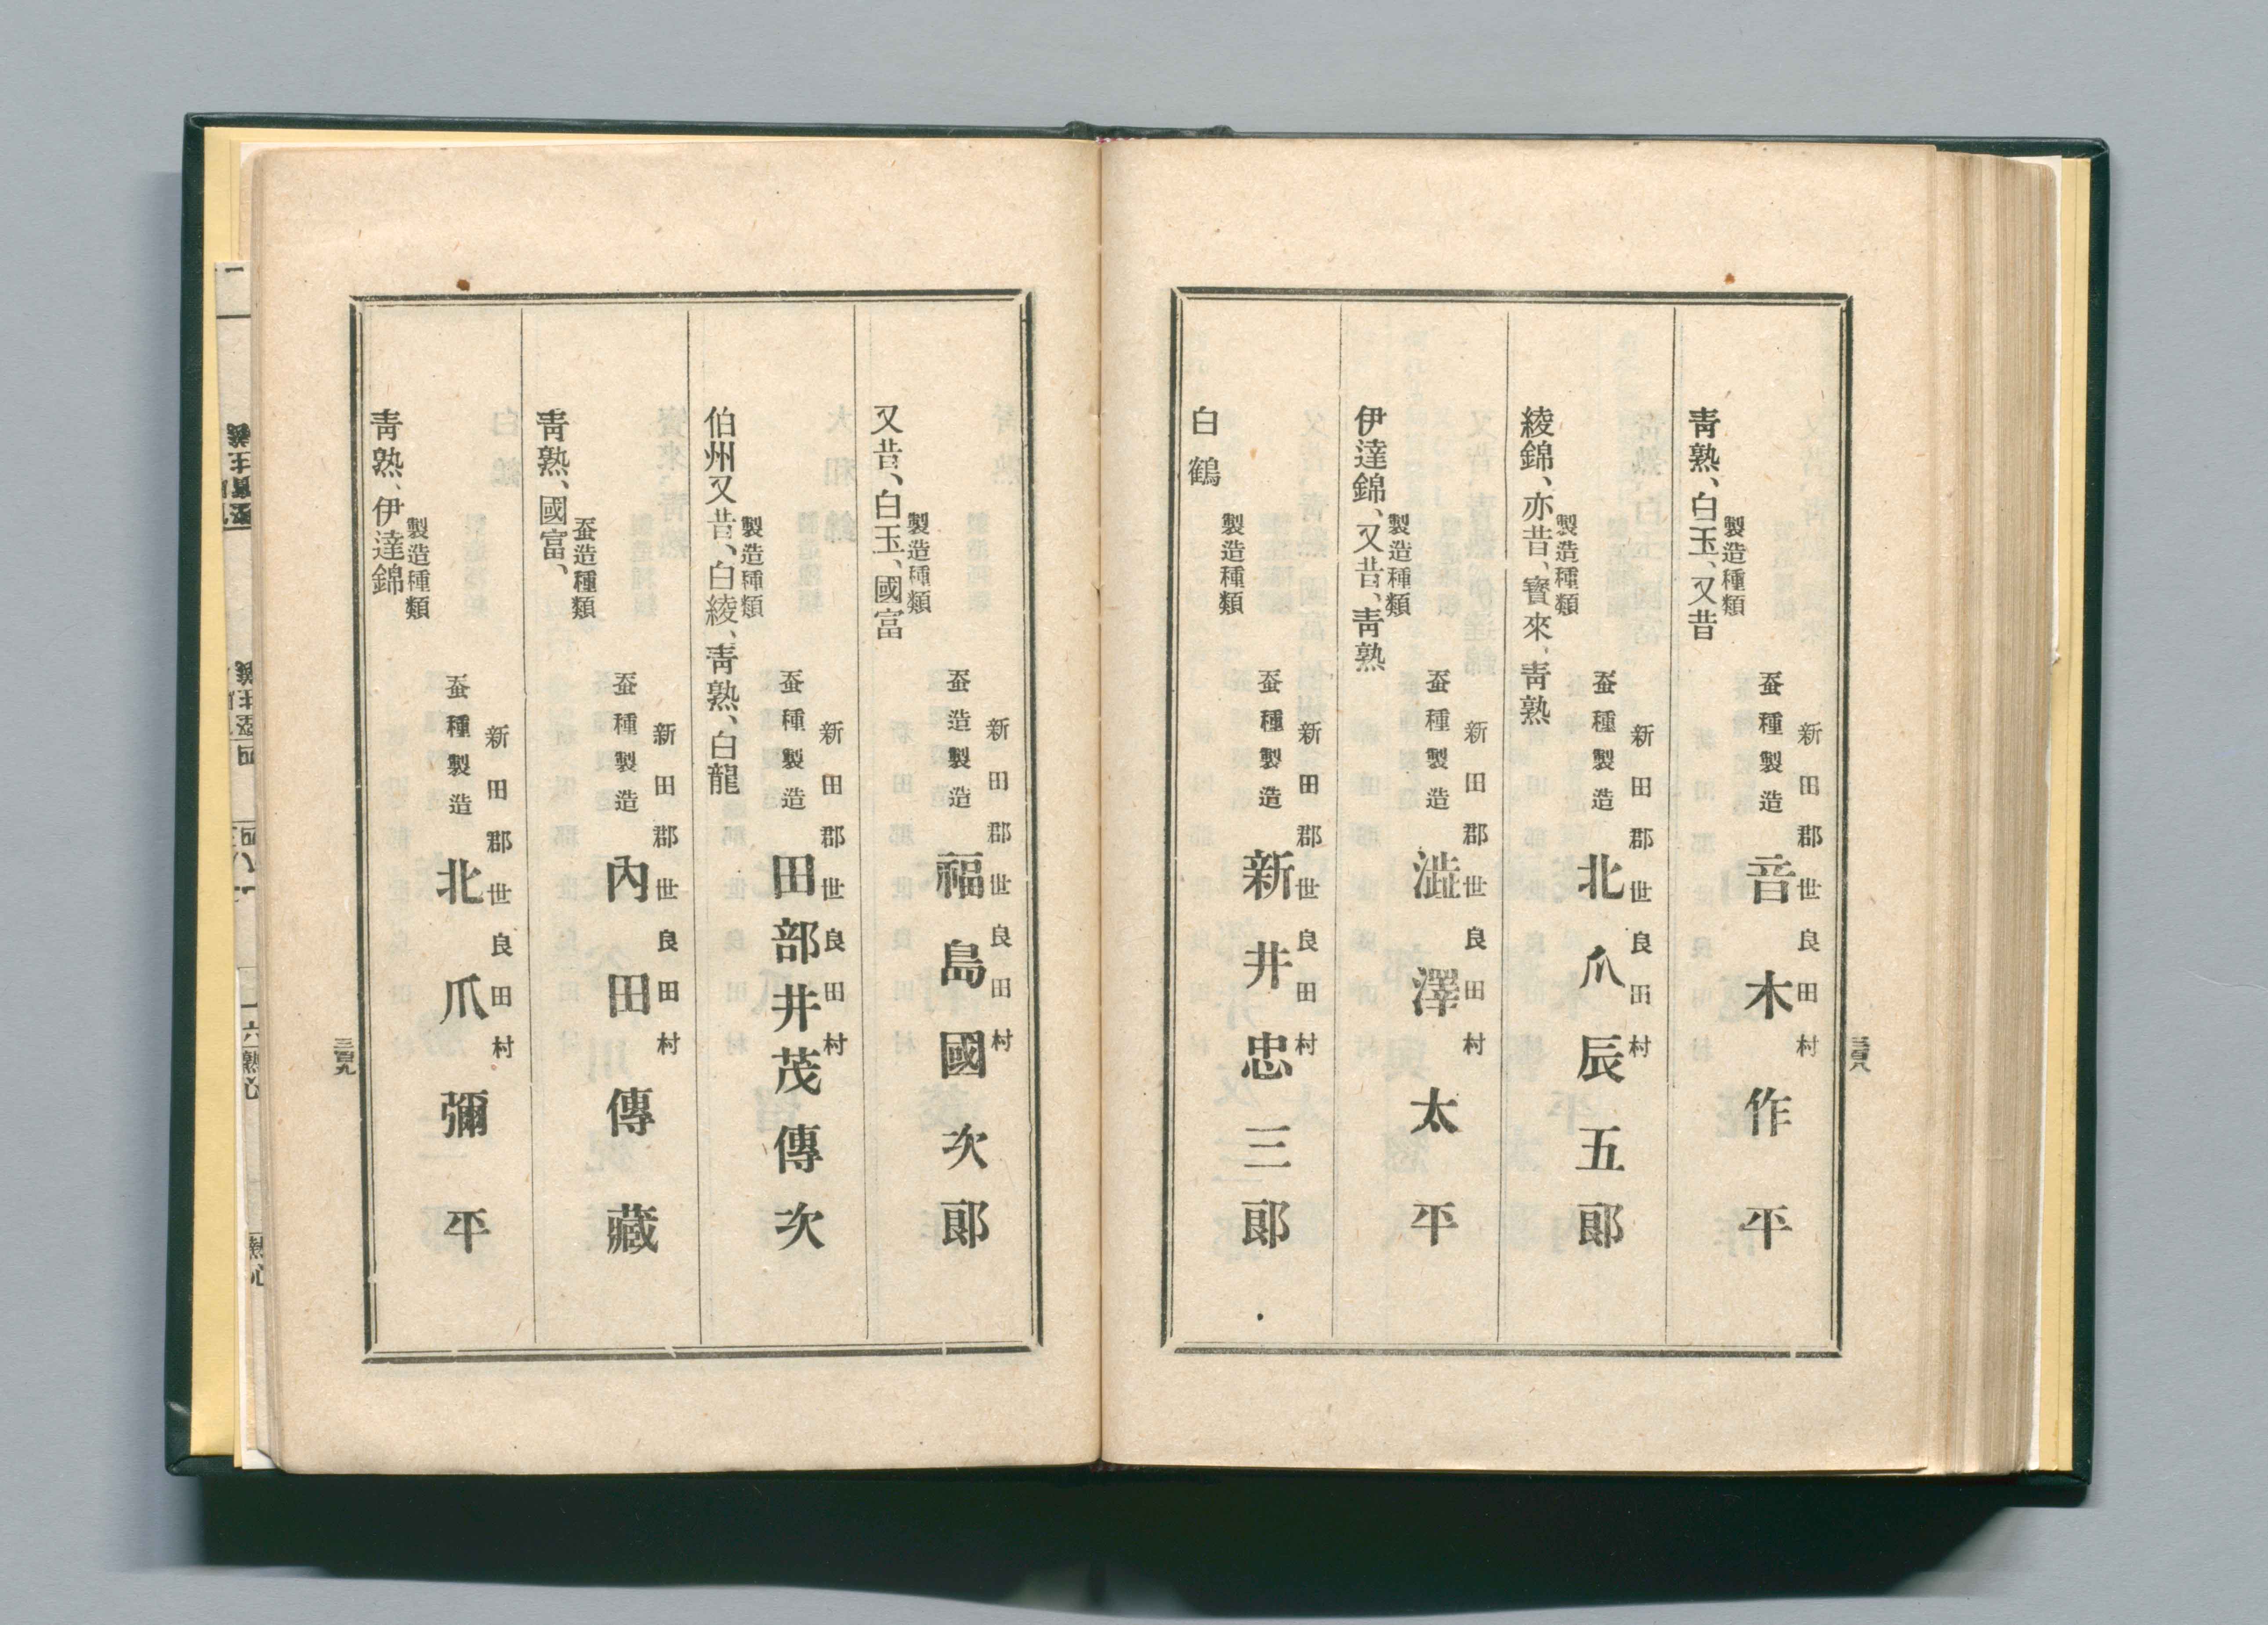 新田郡世良田村
蚕種製造 音木作平
製造種類
靑熟、白玉、又昔
新田郡世良田村
蚕種製造 北爪辰五郞
製造種類
綾錦、亦昔、寳來、靑熟
新田郡世良田村
蚕種製造 澁澤太平
製造種類
伊達錦、又昔、靑熟
新田郡世良田村
蚕種製造 新井忠三郞
製造種類
白鶴
三百八
新田郡世良田村
蚕造製造 福島國次郞
製造種類
又昔、白玉、國富
新田郡世良田村
蚕種製造 田部井茂傳次
製造種類
伯州又昔、白綾、靑熟、白龍
新田郡世良田村
蚕種製造 內田傳藏
蚕造種類
靑熟、國富、
新田郡世良田村
蚕種製造 北爪彌平
製造種類
靑熟、伊達錦
三百九